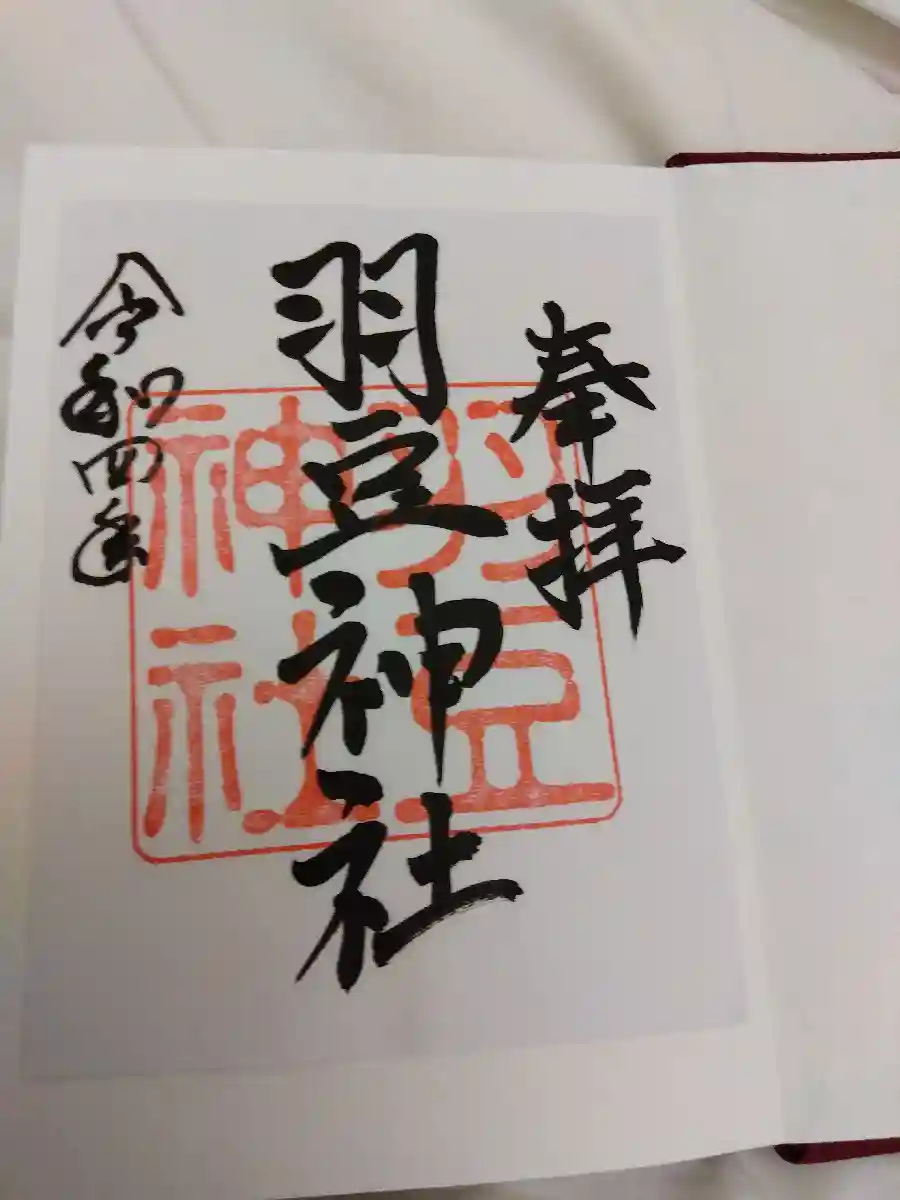 奉拝
羽豆神社
令和四年
羽豆神社